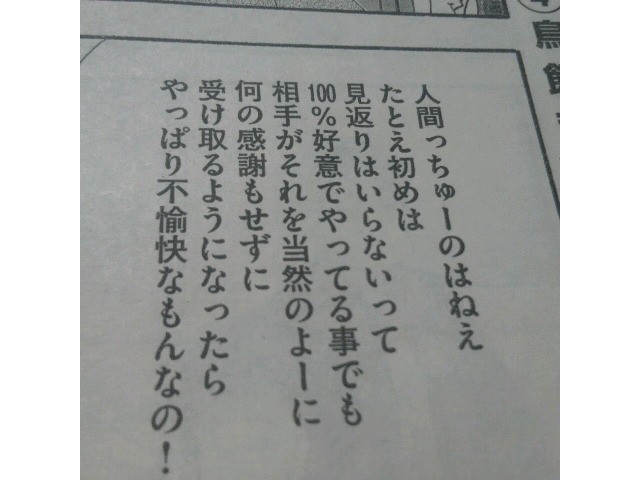 人間っちゅーのはねえ
たとえ初めは
見返りはいらないって
100%好意でやってる事でも
相手がそれを当然のよーに
何の感謝もせずに
受け取るようになったら
やっぱり不愉快なもんなの!